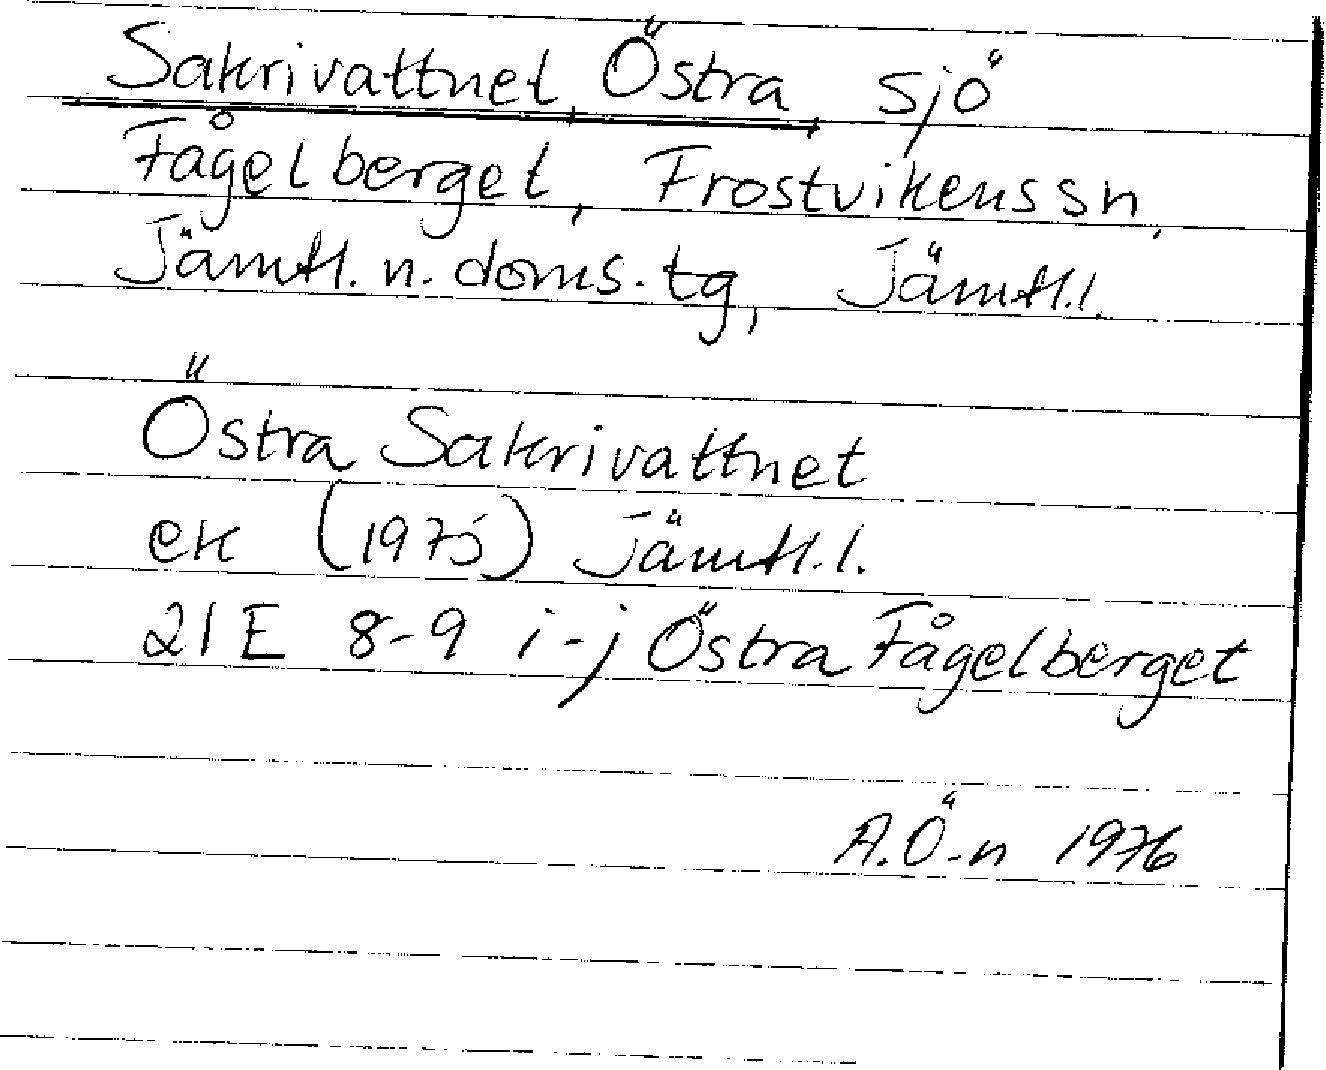 Sakrivattnet, Östra, sjö
Fågelberget, Frostvikens sn,
Jämtl. n. doms. tg, Jämtl.l.
Östra Sakrivattnet
ek (1975) Jämtl.l.
21E 8-9 i-j Östra Fågelberget
A.Ö-n 1976